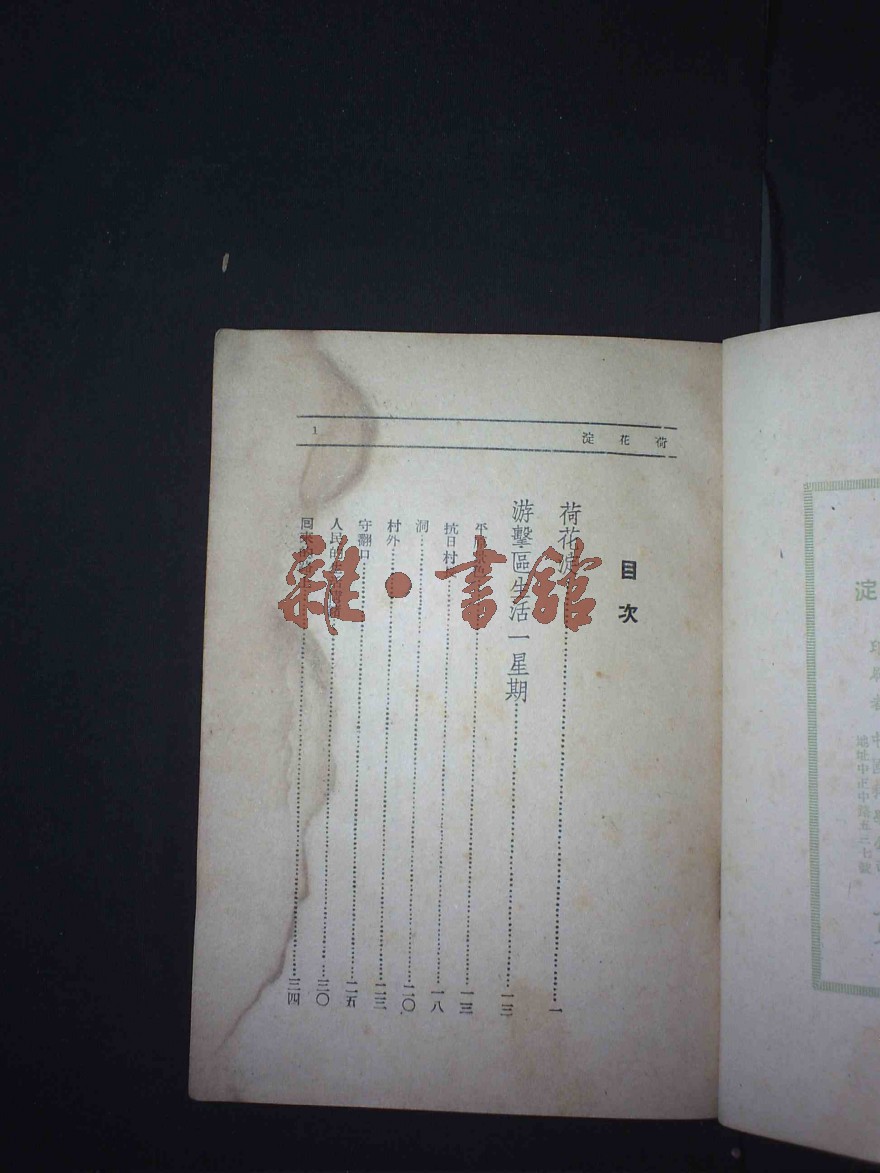 荷花淀
1
目次
荷花淀……一
游擊區生活一星期……一三
平原景色……一三
抗日村……一八
洞……二〇
村外……二三
守翻口……二五
人民的生活情緒……三〇
回來的路上……三四
雜·書館
淀
地址中正中路五三七號